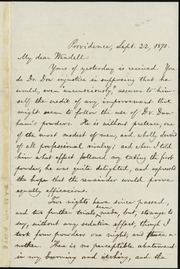 Providence, Sept. 22, 1870.
My dear Wendell:
Yours of yesterday is received. You
do Dr. Dow injustice in supposing that he
would, even unconsciously, assume to him-
self the credit of any improvement that
might seem to follow the use of Dr. Dun-
ham's powders. He is without pretence, one
of the most modest of men, and wholly devoid
of all professional rivalry; and when I told
him what effect followed my taking the first
powder, he was quite delighted, and expressed
the hope that the remainder would prove
equally efficacious.
Two nights have since passed,
and two further trials made, but, strange to
say, without any sedative effect, though I
took four powders one night, and three a-
nother. There is no perceptible abatement
in my burning and aching, and the